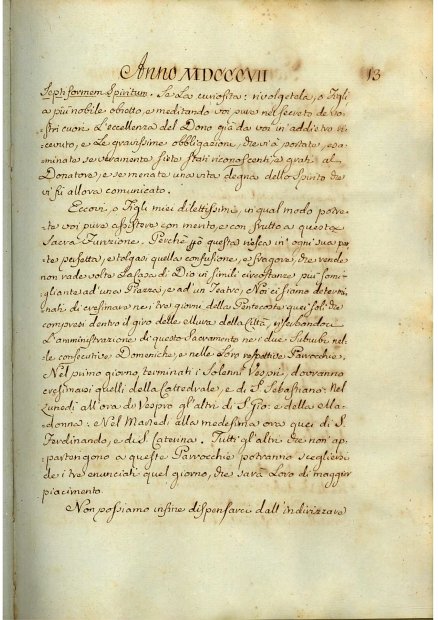 Anno MDCCCVII 13
Septiformem Spiritum. Se La curiosità: rivolgetela, o Figli
a più nobile obietto, e meditando voi pure nel secreto de' vo-
stri cuori L'eccellenza del Dono già da voi in addietro ri-
cevuto, e Le gravissime obbligazioni, che vi à portate, esa-
minate severamente se siete stati riconoscenti, e grati al
Donatore, e se menate una vita degna dello Spirito che
vi fu allora comunicato.
Eccovi, o Figli miei dilettissimi, in qual modo potre-
te voi pure assistere con merito, e con frutto a questa
Sacra Funzione. Perchè però questa riesca in ogni sua par-
te perfetta, e tolgasi quella confusione, e fragore, che rende
non rade volte La Casa di Dio in simili circostanze più somi-
gliante ad una Piazza, e ad un Teatro, Noi ci siamo determi-
nati di cresimare ne' tre giorni della Pentecoste quei soli che
compresi dentro il giro delle Mura della Città, riserbandoci
L'amministrazione di questo Sacramento ne' due Suburbi nel-
le consecutive Domeniche, e nelle Loro rispettive Parrocchie.
Nel primo giorno, terminati i Solenni Vespri, dovranno
cresimarsi quelli della Cattedrale, e di S. Sebastiano: Nel
Lunedì all'ora di Vespro gl'altri di S. Gio: e della Ma-
donna: e Nel Martedì alla medesima ora quei di S.
Ferdinando, e di S. Caterina. Tutti gl'altri che non ap-
partengono a queste Parrocchie potranno scegliersi
de' i tre enunciati quel giorno, che sarà Loro di maggior
piacimento.
Non possiamo infine dispensarci dall'indirizzare